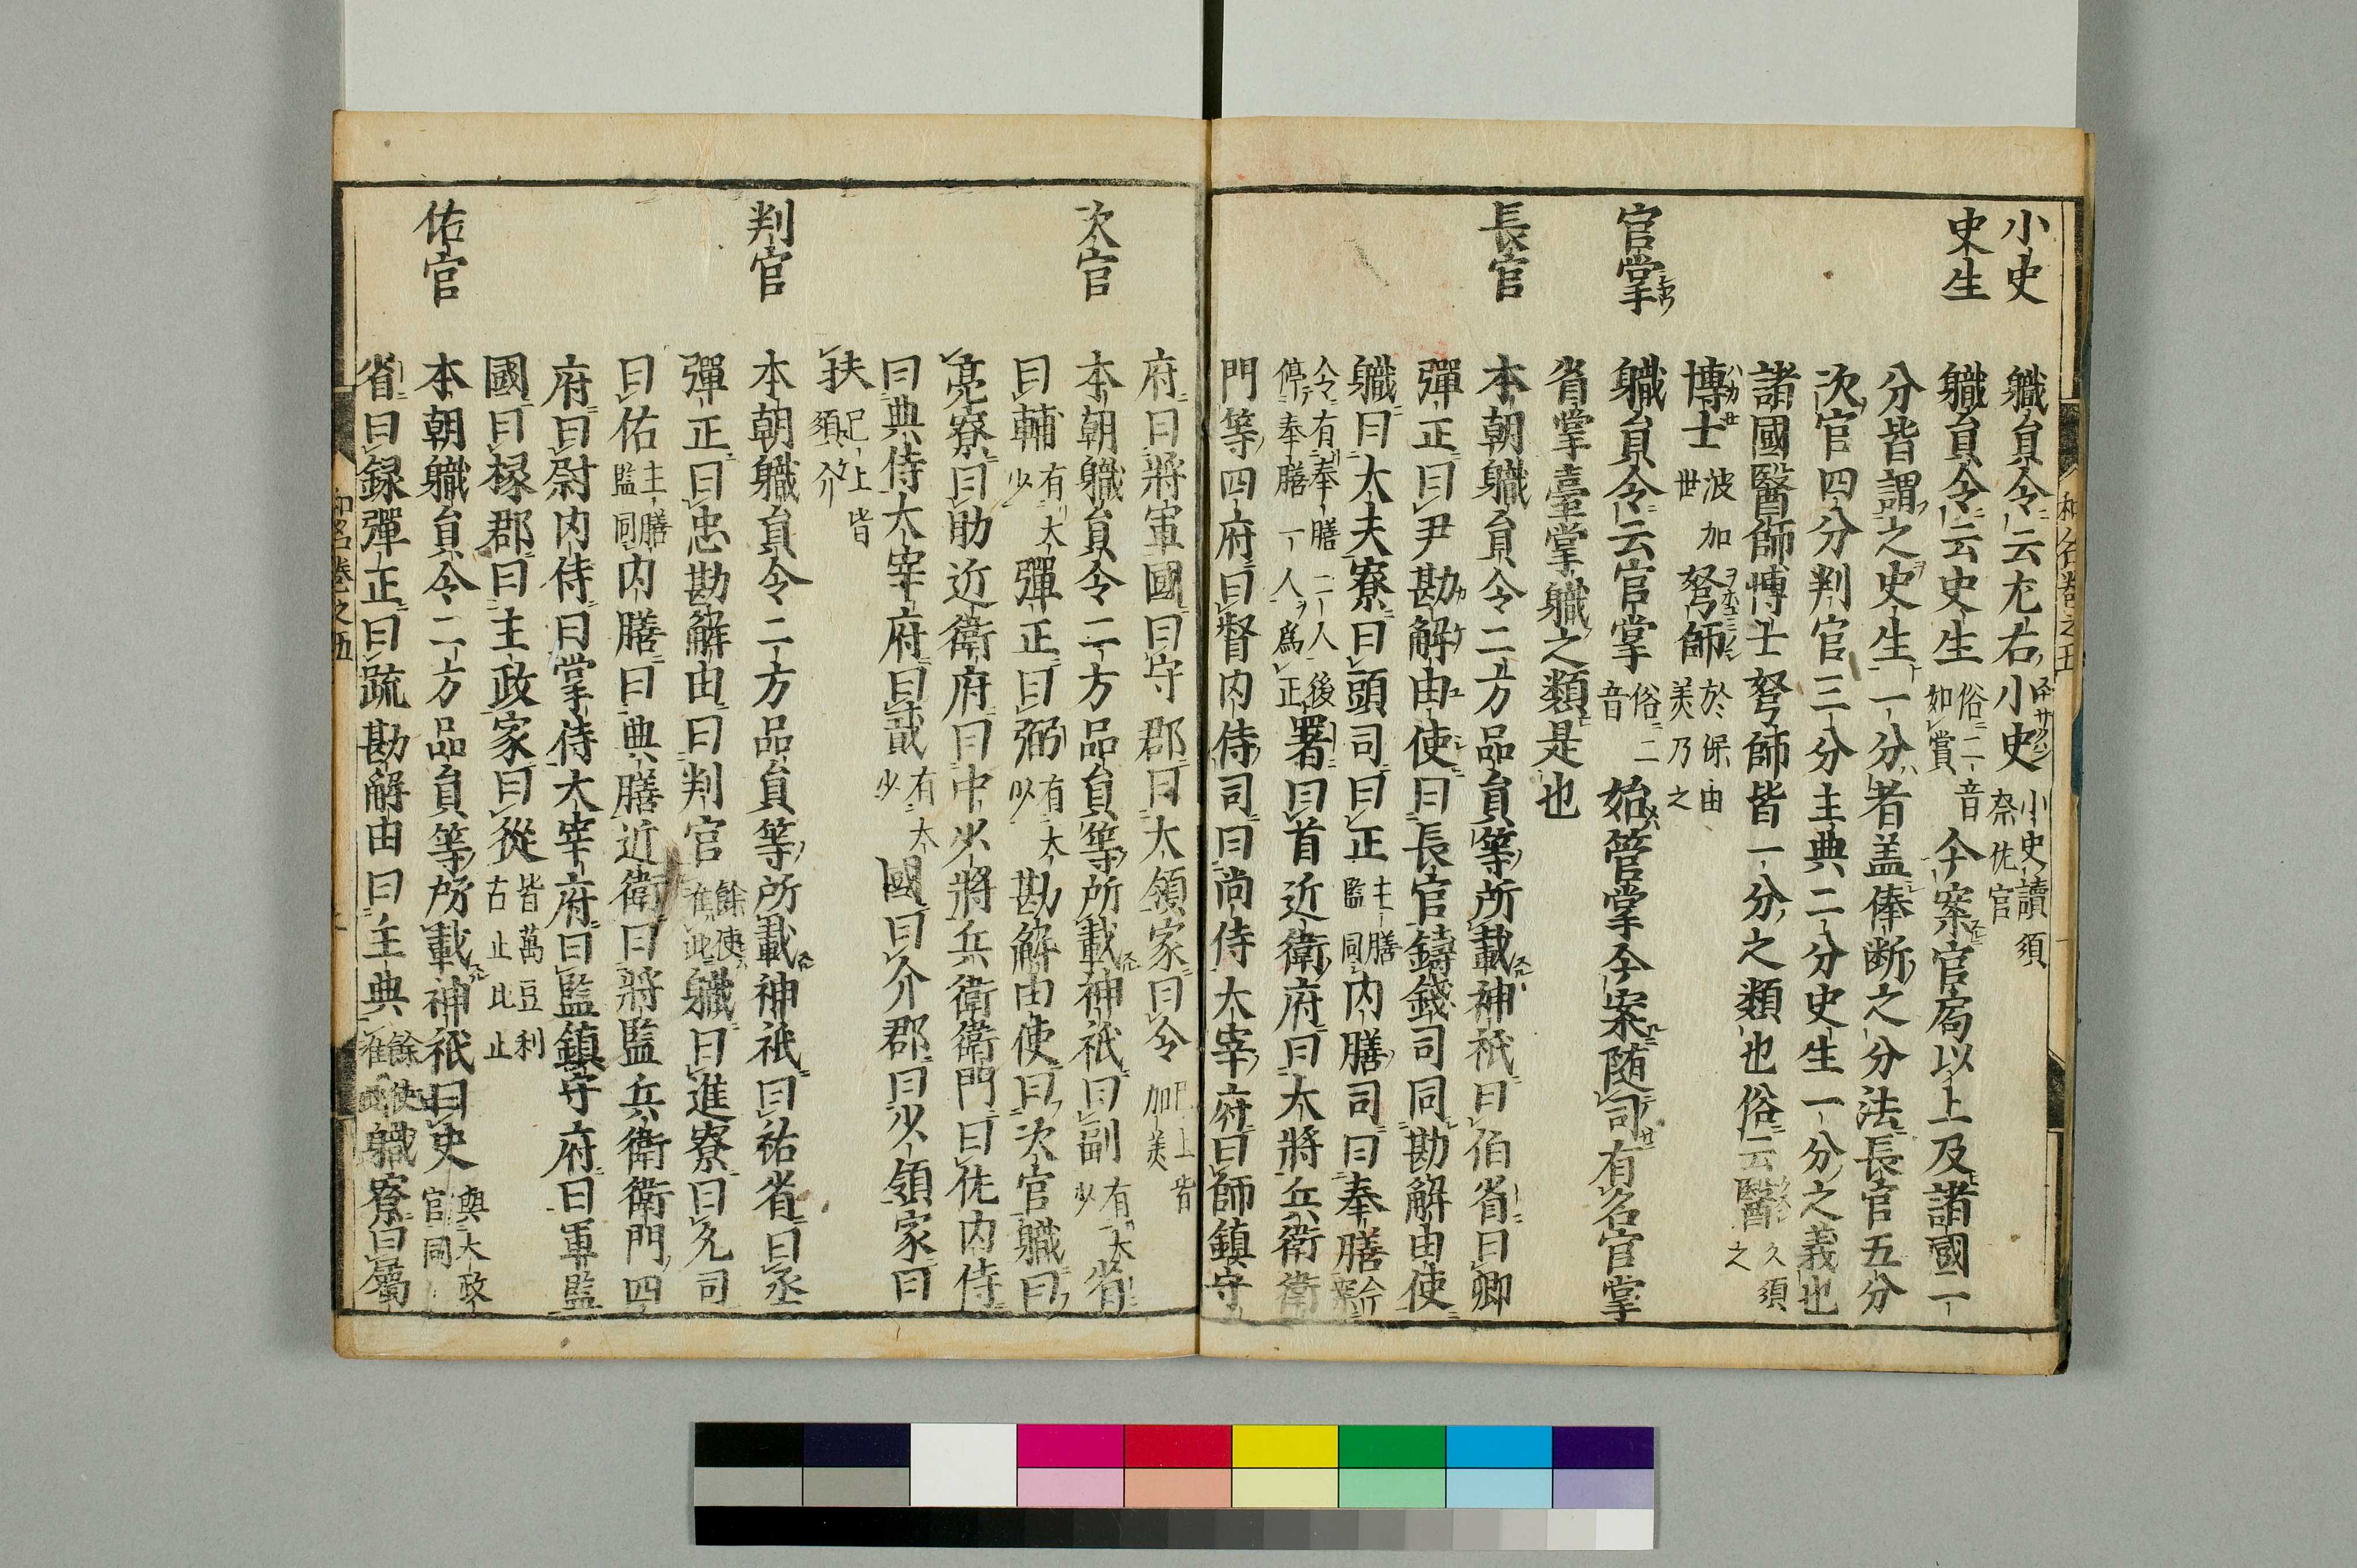 小史 職員令云左右小史 小史讀須奈佐官
史生 職員令云史生 俗二音如賞 今案官局以上及諸國二
分皆謂之史生一分者盖俸断之分法長官五分
次官四分判官三分主典二分史生一分之義也
諸國醫師博士弩師皆一分之類也俗云醫 久須之
博士 波加世 弩師 於保由美乃之
官掌 職員令云官掌 俗二音 始管掌今案随司有名官掌
省掌臺掌掌職之類是也
長官 本朝職員令二方品員等所載神祇曰伯省曰卿
彈正曰尹勘解由使曰長官鑄錢司同勘解由使
職曰大夫寮曰頭司曰正 主膳監同 内膳司曰奉膳
令有奉膳二人後停奉膳一人為正 署曰首近衛府曰大將兵衛衛
門等四府曰督内侍司曰尚侍大宰府曰帥鎮守
府曰將軍國曰守郡曰大領家曰令 已上皆加美
次官 本朝職員令二方品員等所載神祇曰副 有大少 省
曰輔 有大少 彈正曰弼 有大少 勘解由使曰次官職曰
亮寮曰助近衛府曰中少將兵衛衛門曰佐内侍
曰典侍大宰府曰貳 有大少 國曰介郡曰少領家曰
扶 已上皆須介
判官 本朝職員令二方品員等所載神祇曰祐省曰丞
彈正曰忠勘解由曰判官 餘使准此 職曰進寮曰允司
曰佑 主膳監同 内膳曰典膳近衛曰將監兵衛衛門四
府曰尉内侍曰掌侍大宰府曰監鎮守府曰軍監
國曰椽郡曰主政家曰從 皆萬豆利古止比止
佑官 本朝職員令二方品員等所載神祇曰史 與大政官同
省曰録彈正曰疏勘解由曰主典 餘使准此 職寮曰屬
和名巻之五